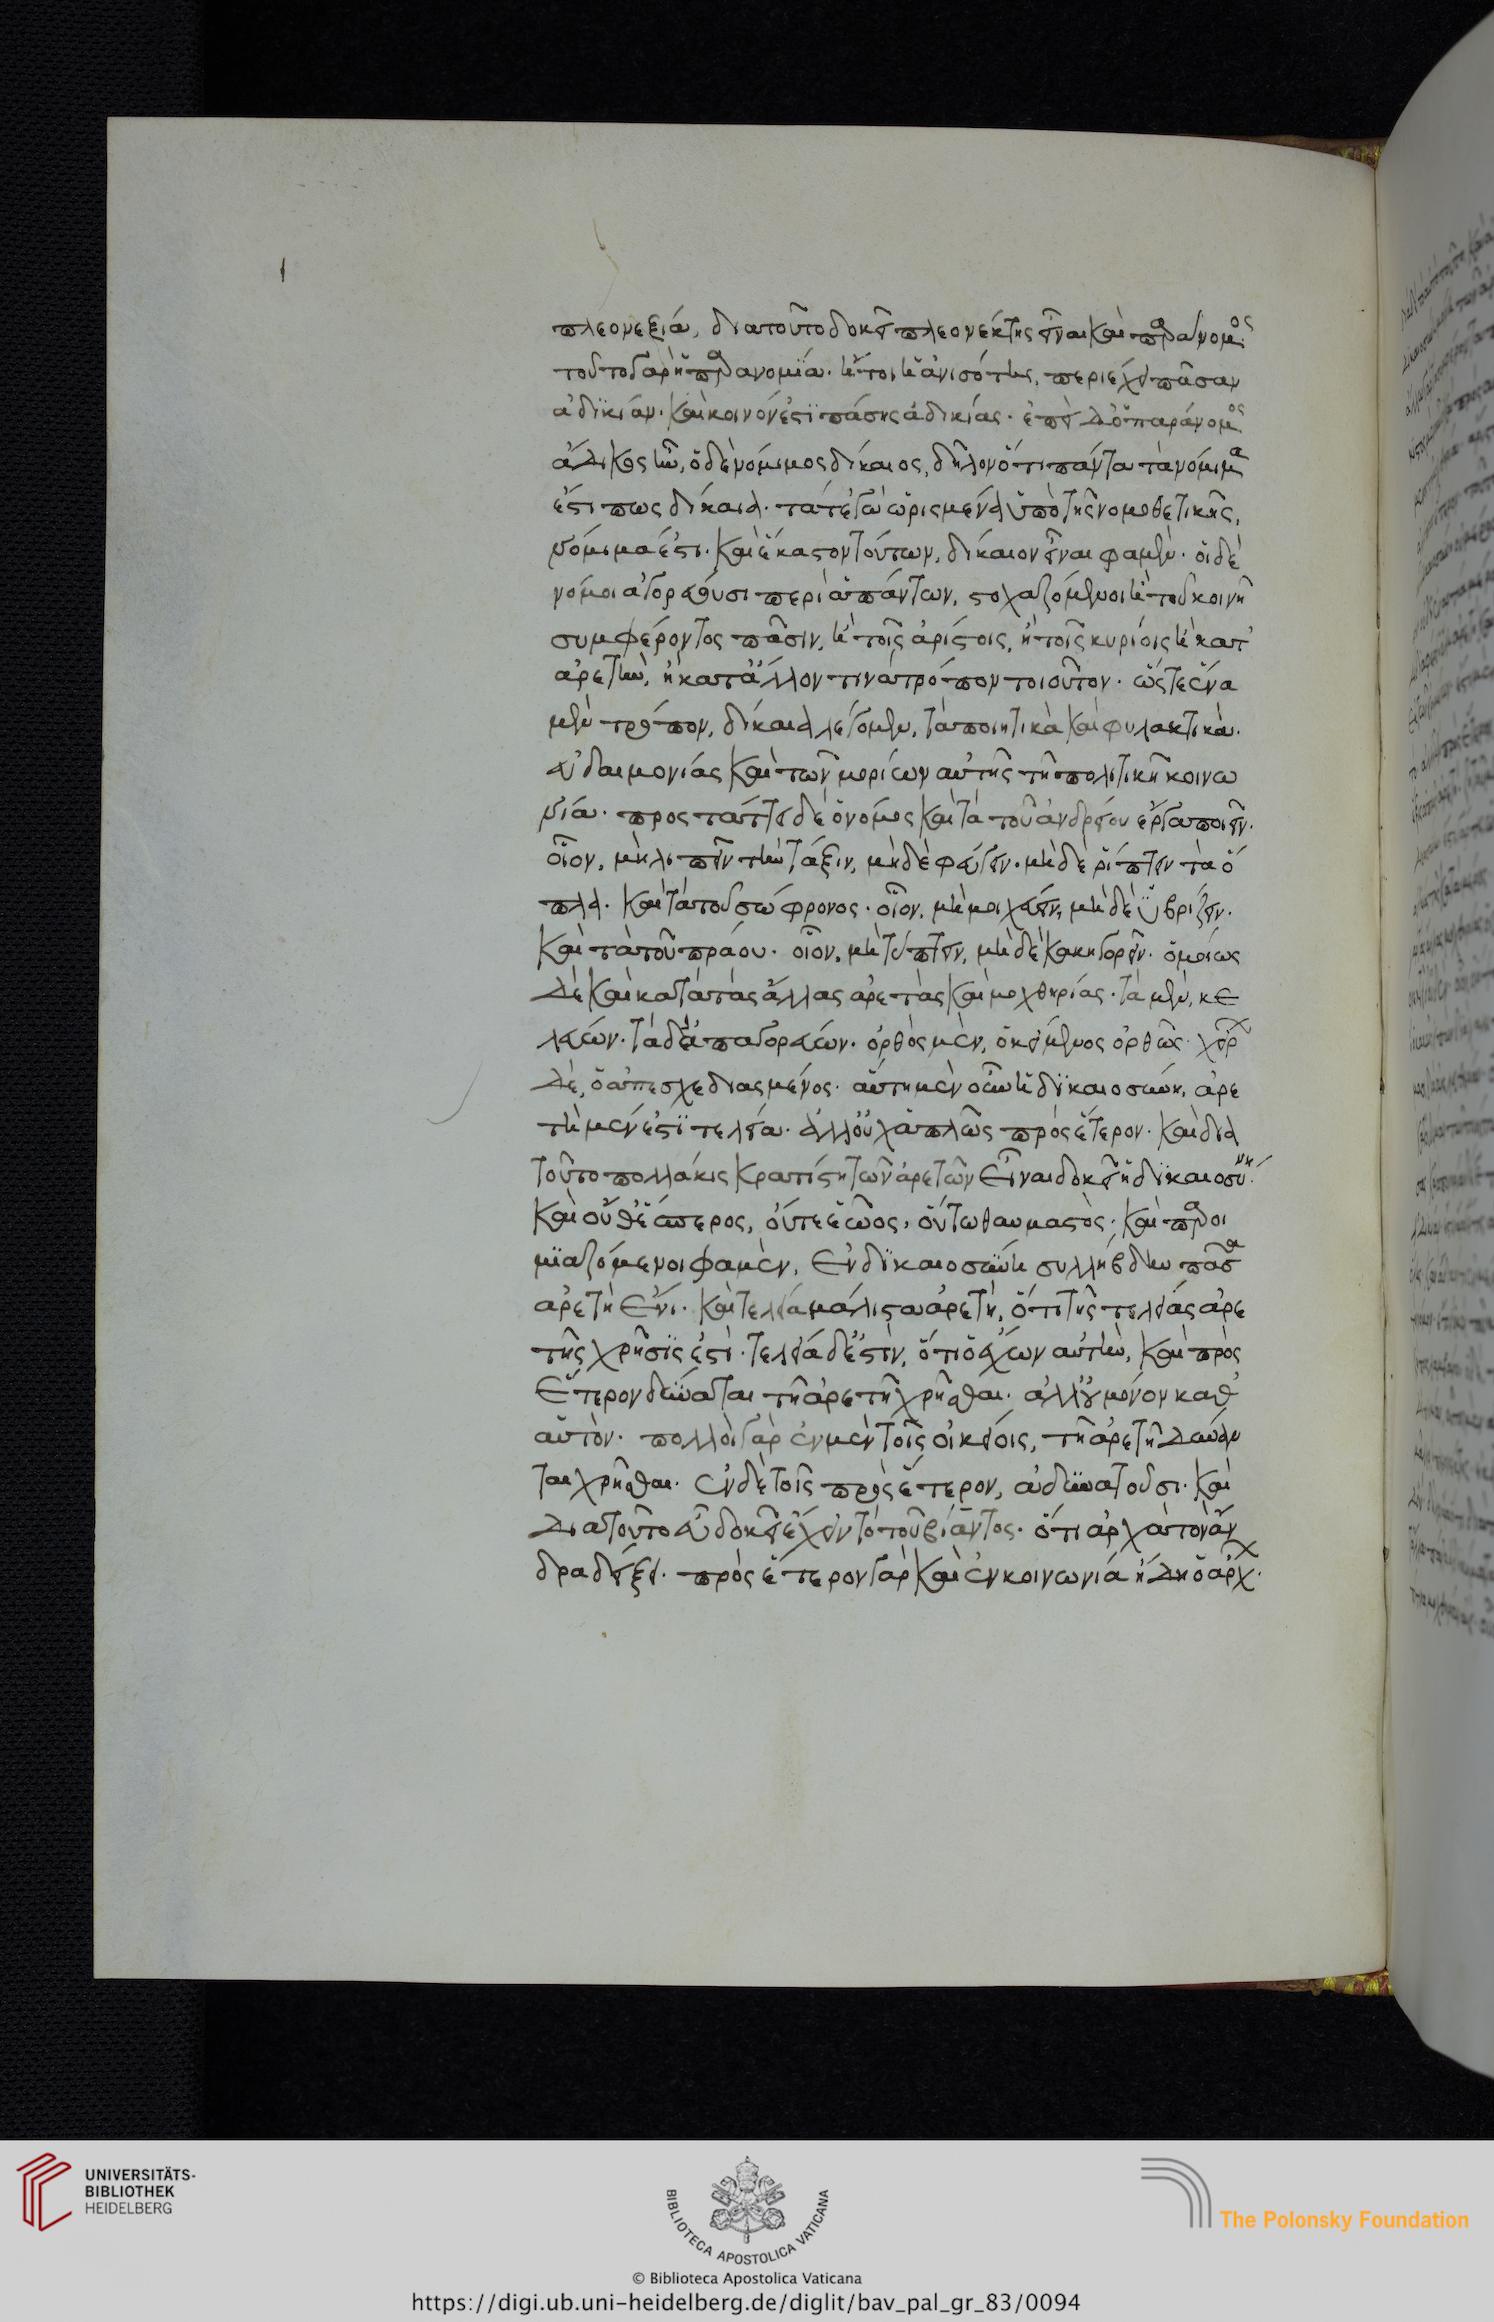 πλεονεξία, διατοῦτο δοκεῖ πλεονέκτης εἶναι καὶ παράνομος·
τοῦτο γὰρ ἡ παρανομία· ἤτοι ἡ ἀνισότης, περιέχει πᾶσαν
ἀδικίαν· καὶ κοινόν ἐστι πάσης ἀδικίας· ἐπεὶ δ' ὁ παράνομος
ἄδικος ἦν, ὁ δὲ νόμιμος δίκαιος, δῆλον ὅτι πάντα τὰ νόμιμα
ἐστί πως δίκαια· τά τε γὰρ ὡρισμένα ὑπὸ τῆς νομοθετικῆς,
νόμιμα ἐστι· καὶ ἕκαστον τούτων, δίκαιον εἶναι φαμέν· οἱ δὲ
νόμοι ἀγορεύουσι περὶ ἁπάντων, στοχαζόμενοι ἢ τοῦ κοινῇ
συμφέροντος πᾶσιν, ἢ τοῖς ἀρίστοις, ἢ τοῖς κυρίοις ἢ κατ'
ἀρετὴν, ἢ κατ' ἄλλον τινὰ τρόπον τοιοῦτον· ὥστε ἕνα
μὲν τρόπον, δίκαια λέγομεν, τὰ ποιητικὰ καὶ φυλακτικὰ·
εὐδαιμονίας καὶ τῶν μορίων αὐτῆς τῇ πολιτικῇ κοινω
νίᾳ· προστάττει δὲ ὁ νόμος καὶ τὰ τοῦ ἀνδρείου ἔργα ποιεῖν·
οἷον, μὴ λιπεῖν τὴν τάξιν, μηδὲ φεύγειν· μηδὲ ῥίπτειν τὰ ὅ
πλα· καὶ τὰ τοῦ σώφρονος· οἷον, μὴ μοιχεύειν, μηδὲ ὑβρίζειν·
καὶ τὰ τοῦ πράου· οἷον, μὴ τύπτειν, μηδὲ κακηγορεῖν· ὁμοίως
δὲ καὶ κατὰ τὰς ἄλλας ἀρετὰς καὶ μοχθηρίας· τὰ μὲν, κε
λεύων· τὰ δ' ἀπαγορεύων· ὀρθὸς μὲν, ὁ κείμενος ὀρθῶς· χεῖρ
δὲ, ὁ ἀπεσχεδιασμένος· αὕτη μὲν οὖν ἡ δικαιοσύνη, ἀρε
τὴ μέν ἐστι τελεία· ἀλλ' οὐχ ἁπλῶς πρὸς ἕτερον· καὶ διὰ
τοῦτο πολλάκις κρατίστη τῶν ἀρετῶν εἶναι δοκεῖ ἡ δικαιοσύνη·
καὶ οὔθ' ἕσπερος, οὔτε ἑῷος, οὕτω θαυμαστὸς· καὶ παροι
μιαζόμενοι φαμὲν, ἐν δικαιοσύνῃ συλλήβδην πᾶσα
ἀρετὴ ἔνι· καὶ τελεία μάλιστα ἀρετή, ὅτι τῆς τελείας ἀρε
τῆς χρῆσίς ἐστι· τελεία δ' ἐστὶν, ὅτι ὁ ἔχων αὐτὴν, καὶ πρὸς
ἕτερον δύναται τῇ ἀρετῇ χρῆσθαι· ἀλλ' οὐ μόνον καθ'
αὑτὸν· πολλοὶ γὰρ ἐν μὲν τοῖς οἰκείοις, τῇ ἀρετῇ δύναν
ται χρῆσθαι· ἐν δὲ τοῖς πρὸς ἕτερον, ἀδυνατοῦσι· καὶ
διατοῦτο εὖ δοκεῖ ἔχειν τὸ τοῦ βίαντος· ὅτι ἀρχὰ τὸν ἄν
δρα δείξει· πρὸς ἕτερον γὰρ καὶ ἐν κοινωνίᾳ ἤδη ὁ ἄρχ·
UNIVERSITÄTS-
BIBLIOTHEK
HEIDELBERG
BIBLIOTECA APOSTOLICA VATICANA
The Polonsky Foundation
© Biblioteca Apostolica Vaticana
https://digi.ub.uni-heidelberg.de/diglit/bav_pal_gr_83/0094